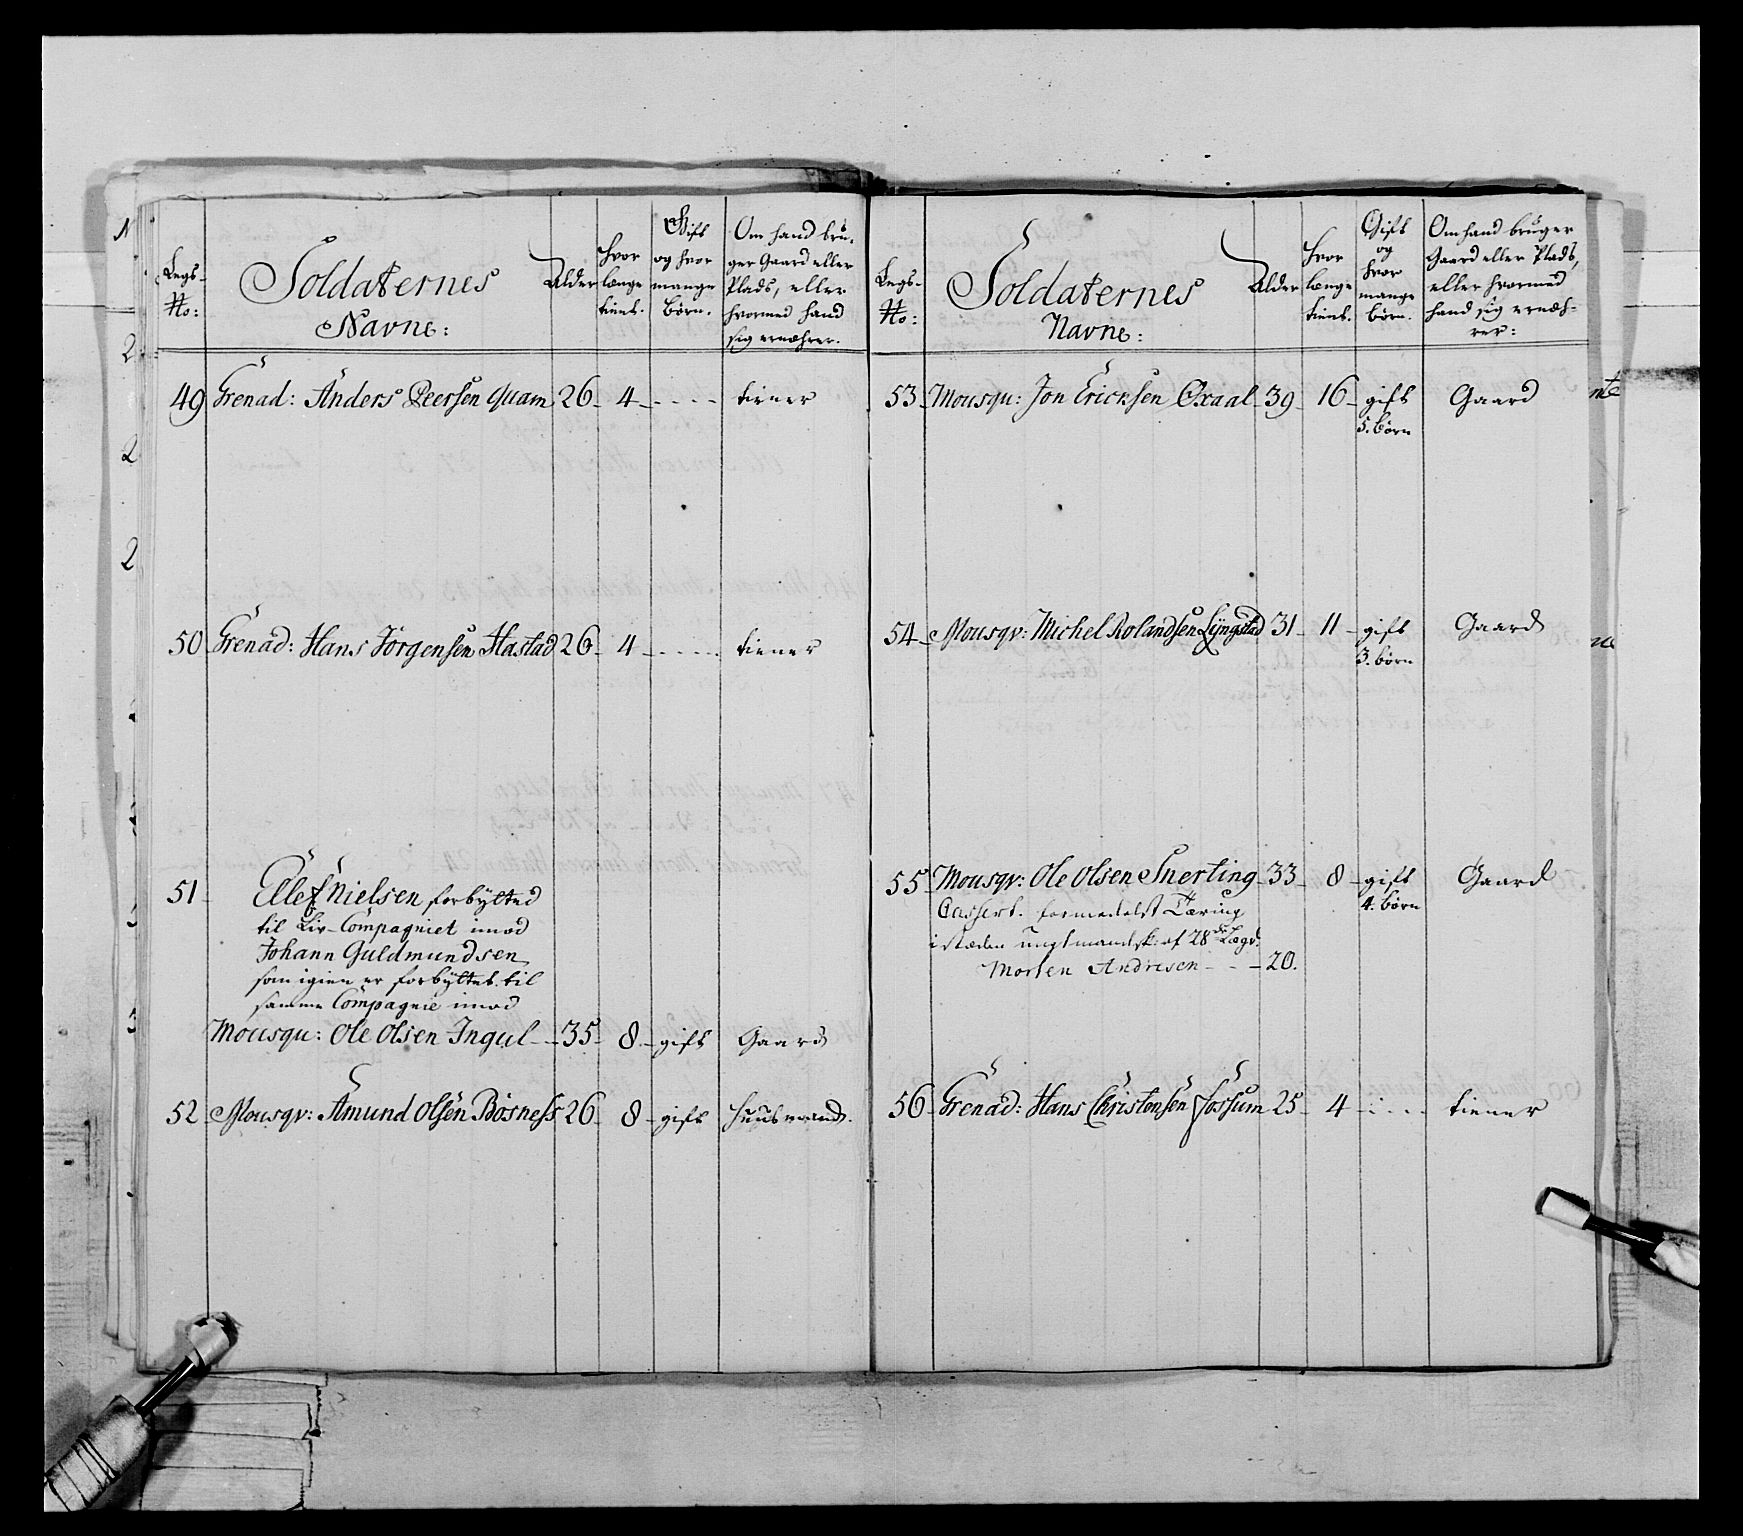 Legs-
No:
Soldaternes
Navne:
Alder
hvor
længe
tient.
Gift
og hvor
mange
børn.
Om hand bru-
ger Gaard eller
Plads, eller
hvormed hand
sig ernæhrer.
49 Grenad: Anders Peersen Quam 26 4 - - - - tiener
50 Grenad: Hans Jörgensen Hastad 26 4 - - - - tiener
51 Ellef Nielsen forbytted
til Liv-Compagniet imod
Johann Guldmundsen
som igien er forbyttet til
samme Compagnie imod
Mousqu: Ole Olsen Ingul - - 35 8 gift Gaard
52 Mousqv: Amund Olsen Bösness 26 8 gift huusmand.
Legs-
No:
Soldaternes
Navne:
Alder
hvor
længe
tient.
Gift
og
hvor
mange
børn.
Om hand bruger
Gaard eller Plads,
eller hvormed
hand sig ernæh-
rer:
53 Mousqu: Jon Ericksen Oxaal 39 16 gift Gaard
5. børn
54 Mousqv: Michel Rolandsen Lÿngstad 31 11 gift Gaard
3. børn
55 Mousqv: Ole Olsen Snerting 33 8 gift Gaard
4. børn
Cassert. formedelst Tæring
i stæden ungt mandsk: af 28de Lægd.
Morten Andresen - - - 20.
56 Grenad: Hans Christensen Fossum 25 4 - - - - tiener